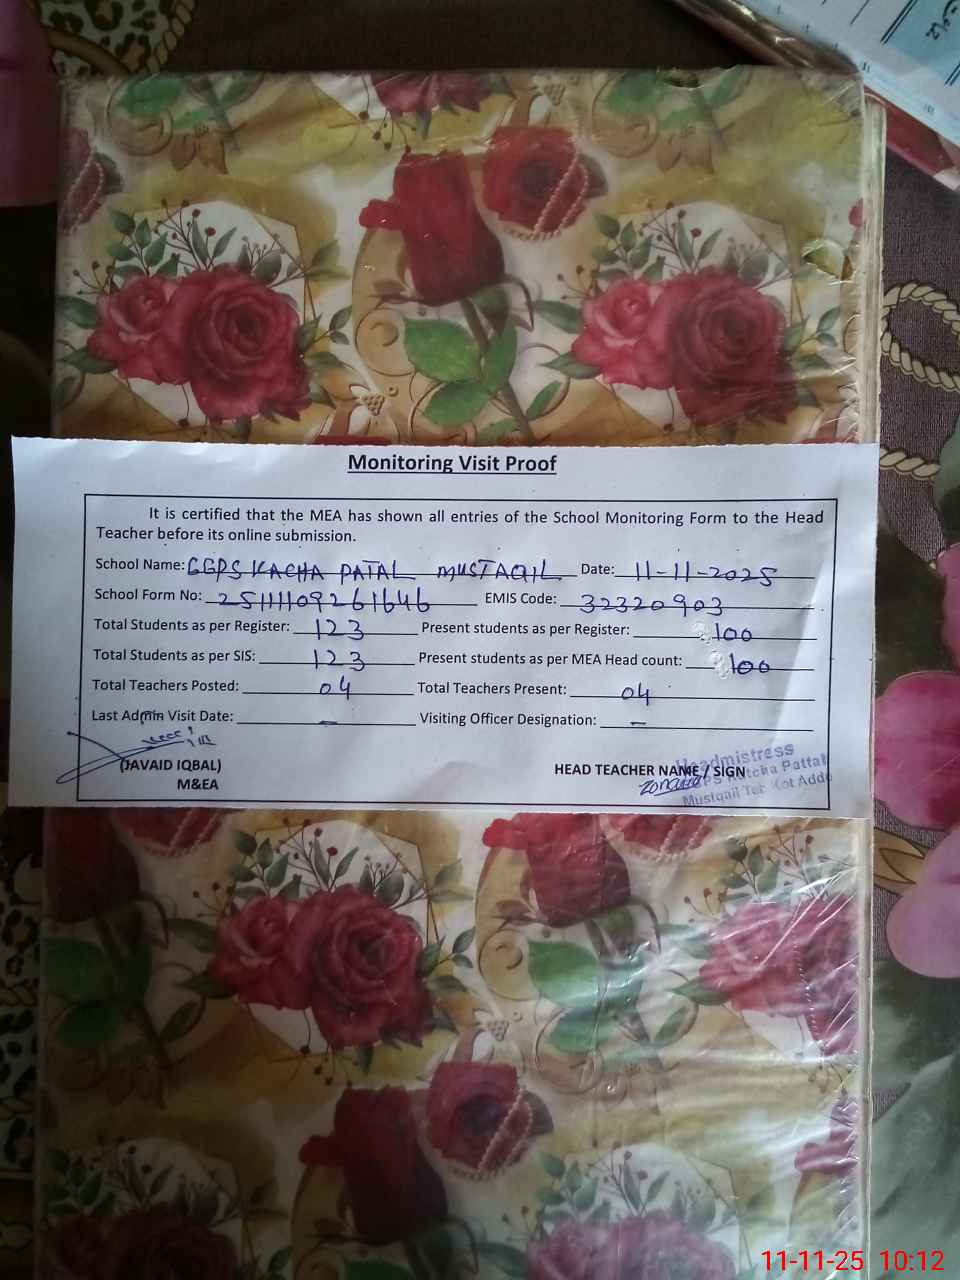 Monitoring Visit Proof
It is certified that the MEA has shown all entries of the School Monitoring Form to the Head
Teacher before its online submission.
School Name: GGPS KACHA PATAL MUSTAQIL Date: 11-11-2025
School Form No: 25111109261646 EMIS Code: 32320903
Total Students as per Register: 123 Present students as per Register: 100
Total Students as per SIS: 123 Present students as per MEA Head count: 100
Total Teachers Posted: 04 Total Teachers Present: 04
Last Admin Visit Date: - Visiting Officer Designation: -
(JAVAID IQBAL)
M&EA
HEAD TEACHER NAME / SIGN
Headmistress
GPS Katcha Pattal
Mustqail Teh Kot Addu
11-11-25 10:12